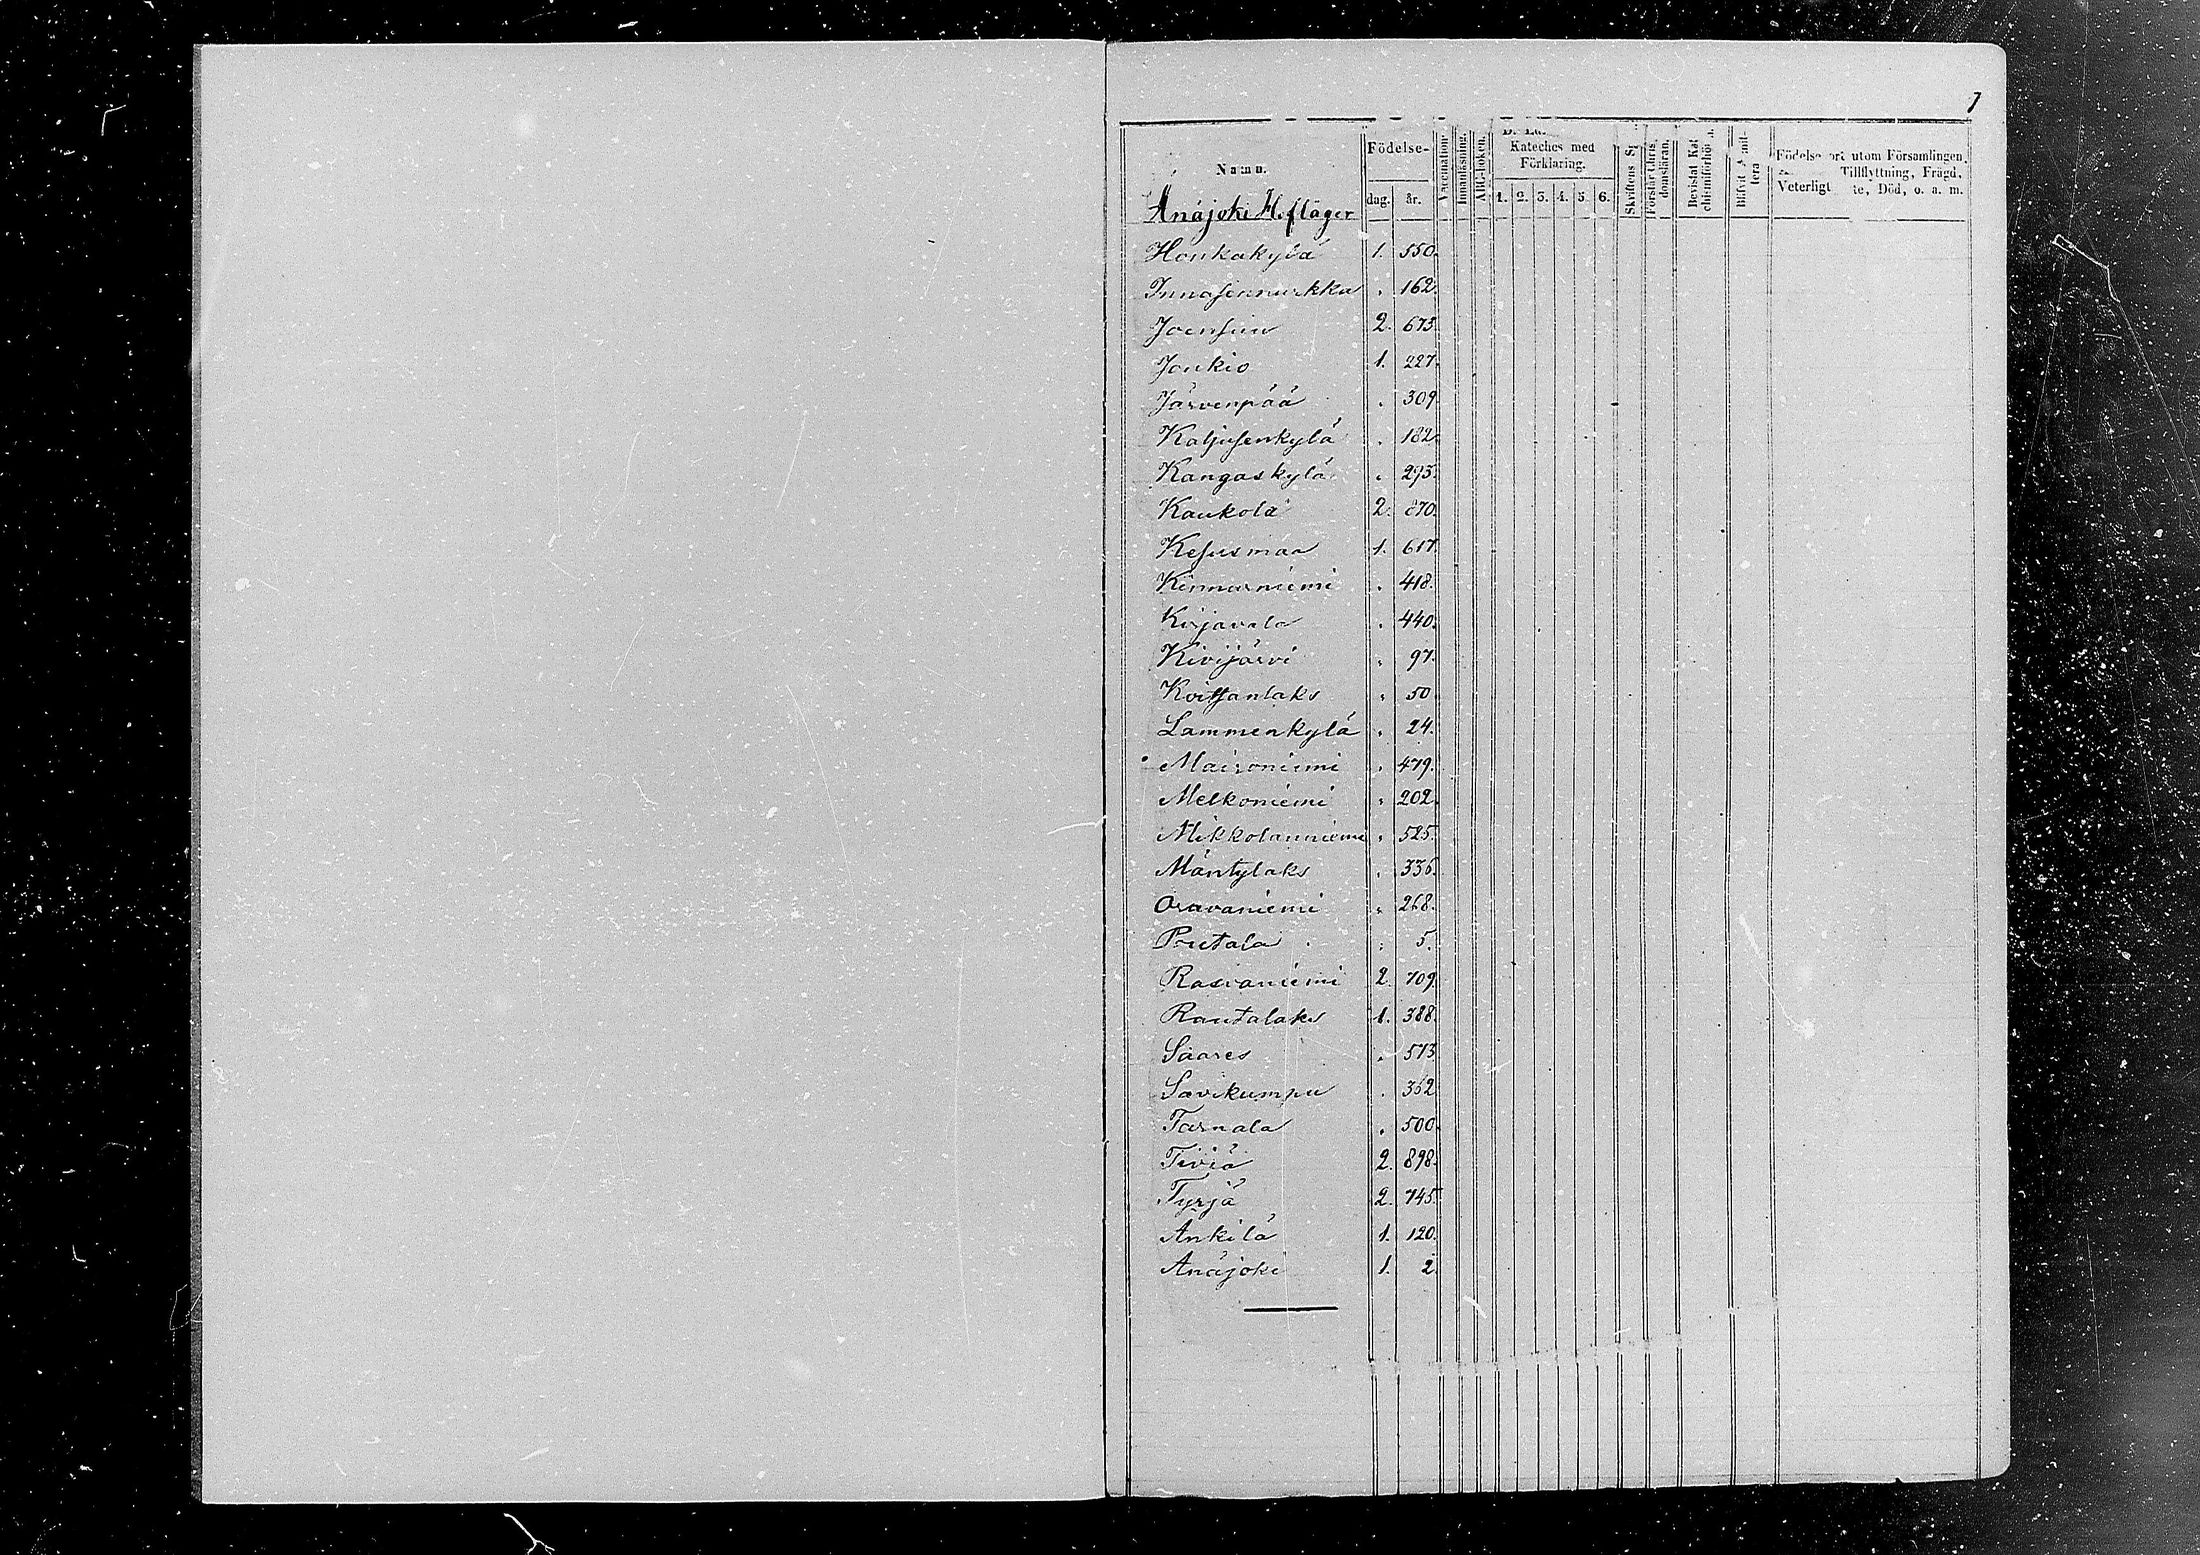 1
Namn.
Födelse-
dag. år.
Vaccination.
Innanläsning.
ABC-boken.
Kateches med
Förklaring.
1. 2. 3. 4. 5. 6.
Skriftens
Förstår Chris-
domsläran.
Bevistat Kat
chismiförhör
Blifvit
Födelseort utom Församlingen,
Tillflyttning, Frägd,
Veterligt te, Död, o. a. m.
Änäjoki Hofläger
Honkakylä 1. 550.
Innasennurkka " 162.
Joensuu 2. 673.
Joukio 1. 227.
Järvenpää " 309
Kaljusenkylä " 182.
Kangaskylä " 293.
Kaukola 2. 870.
Kesusmaa 1. 617.
Kinnarniemi " 418.
Kirjavala " 440.
Kivijärvi " 97.
Koitsanlaks " 50
Lammenkylä " 24.
Maironiemi " 479.
Melkoniemi " 202.
Mikkolanniemi " 525.
Mäntylaks " 336.
Oravaniemi " 268.
Poutala " 5.
Rasvaniemi 2. 709.
Rautalaks 1. 388.
Saares " 573
Savikumpu " 362
Tarnala " 500.
Tiviä 2. 898.
Tyrjä 2. 745.
Änkilä 1. 120.
Änäjoki 1. 2.